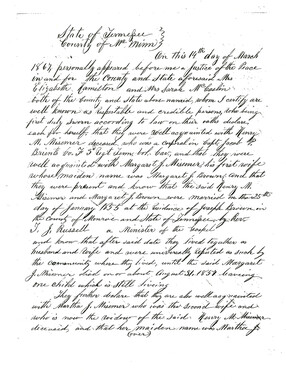 State of Tennessee
County of McMinn
On this 14th day of March
1867, personally appeared before me a Justice of the Peace
in and for The County and State aforesaid Mrs
Elizabeth Hamilton and Mrs Sarah McCaslin
both of the County and State above named, whom I certify are
well known as reputable and credible persons, who being
first duly sworn according to law on their oaths declare,
each for herself, that they were well acquainted with Henry
M. Misemer deceased, who was a captain in Capt Jacob K
Co. F 3d Regt Tenn vol. Cav, and that they were
well acquainted with Margaret J. Misemer his first wife
whose maiden name was Margaret J Brown, and that
they were present and know that the said Henry M.
Misemer and Margaret J Brown were married on the 25th
day of January 1855 at the residence of Joseph Brown in
the County of Monroe and State of Tennessee by Rev.
T. J. Russell a Minister of the Gospel
and know that after said date they lived together as
Husband and Wife and were universally reputed as such by
the community where they lived, until the said Margaret
J Misemer died on or about August 31, 1857 leaving
one child which is still living
They further declare that they are also well acquainted
with Martha J Misemer who was the second wife and
who is now the widow of the said Henry M. Misemer
deceased, and that her maiden name was Martha J.
(over)